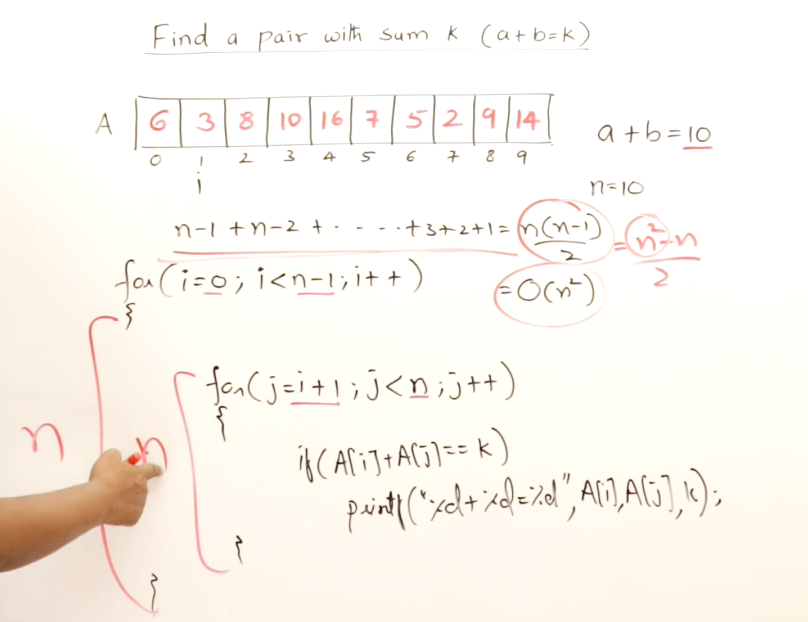 Find a pair with sum K (a+b=k)
A 6 3 8 10 16 7 5 2 9 14
0 1 2 3 4 5 6 7 8 9
a+b=10
i
n=10
n-1 +n-2 + - - - - +3+2+1= n(n-1)/2 = n²-n/2
for(i=0; i<n-1; i++)
=O(n²)
{
for(j=i+1; j<n; j++)
{
n
n
if(A[i]+A[j]==k)
printf("%d+%d=%d",A[i],A[j],k);
}
}